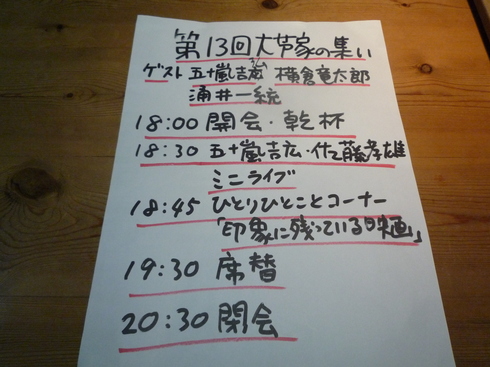 第13回大芦家の集い
ゲスト 五十嵐吉広 横倉竜太郎
涌井一統
18:00 開会・乾杯
18:30 五十嵐吉広・佐藤孝雄
ミニライブ
18:45 ひとりひとことコーナー
「印象に残っている映画」
19:30 席替
20:30 閉会